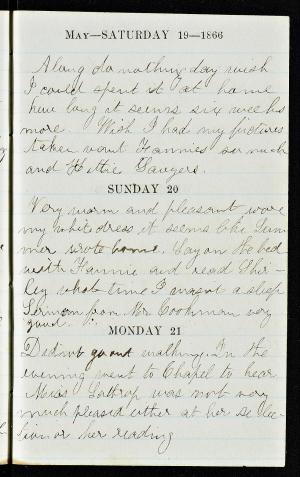 May—SATURDAY 19—1866
A long do nothing day wish
I could spent it at home
how long it seems six weeks
more. Wish I had my pictures
taken want Fannies so much
and Hattie Sawyers.
SUNDAY 20
Very warm and pleasant wore
my white dress, it seems like Sum
mer wrote home. Lay on the bed
with Fannie and read Shir-
ley what time I wasnt asleep
Sermon from Mr. Cookman very
good.
MONDAY 21
Didnt go out walking. In the
evening went to Chapel to hear
Miss Lathrop was not very
much pleased either at her selec
tion or her reading